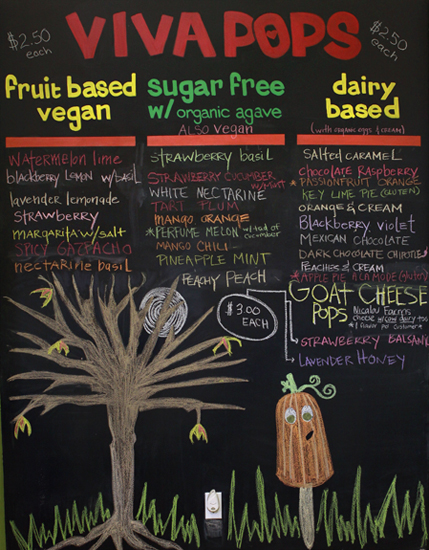 $2.50 each
VIVA POPS
$2.50 each
fruit based
vegan
Watermelon lime
blackberry lemon w/basil
lavender lemonade
strawberry
margarita w/salt
spicy gazpacho
nectarine basil
sugar free
w/ organic agave
ALSO vegan
strawberry basil
Strawberry cucumber
White nectarine
Tart plum
mango orange
*Perfume melon w/ tad of cucumber
mango chili
Pineapple mint
Peachy Peach
dairy
based
(with organic eggs & cream)
Salted caramel
chocolate raspberry
*Passionfruit orange
Key lime pie (gluten)
orange & cream
Blackberry violet
Mexican chocolate
Dark chocolate chipotle
Peaches & cream
*Apple pie a la mode (gluten)
GOAT CHEESE
Pops
cheese
$3.00
EACH
Strawberry
Lavender Honey